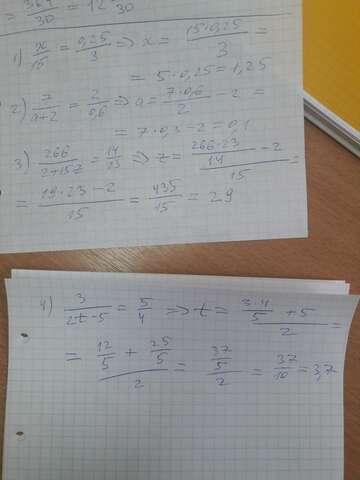 364/30 = 12 /30
1) x/15 = 0,25/3 => x = 15·0,25/3 =
= 5·0,25 = 1,25
2) 7/(a+2) = 2/0,6 => a = 7·0,6/2 - 2 =
= 7·0,3 - 2 = 0,1
3) 266/(2+15z) = 14/23 => z = (266·23/14 - 2)/15 =
= (19·23 - 2)/15 = 435/15 = 29
4) 3/(2t-5) = 5/4 => t = (3·4/5 + 5)/2 =
= (12/5 + 25/5)/2 = (37/5)/2 = 37/10 = 3,7